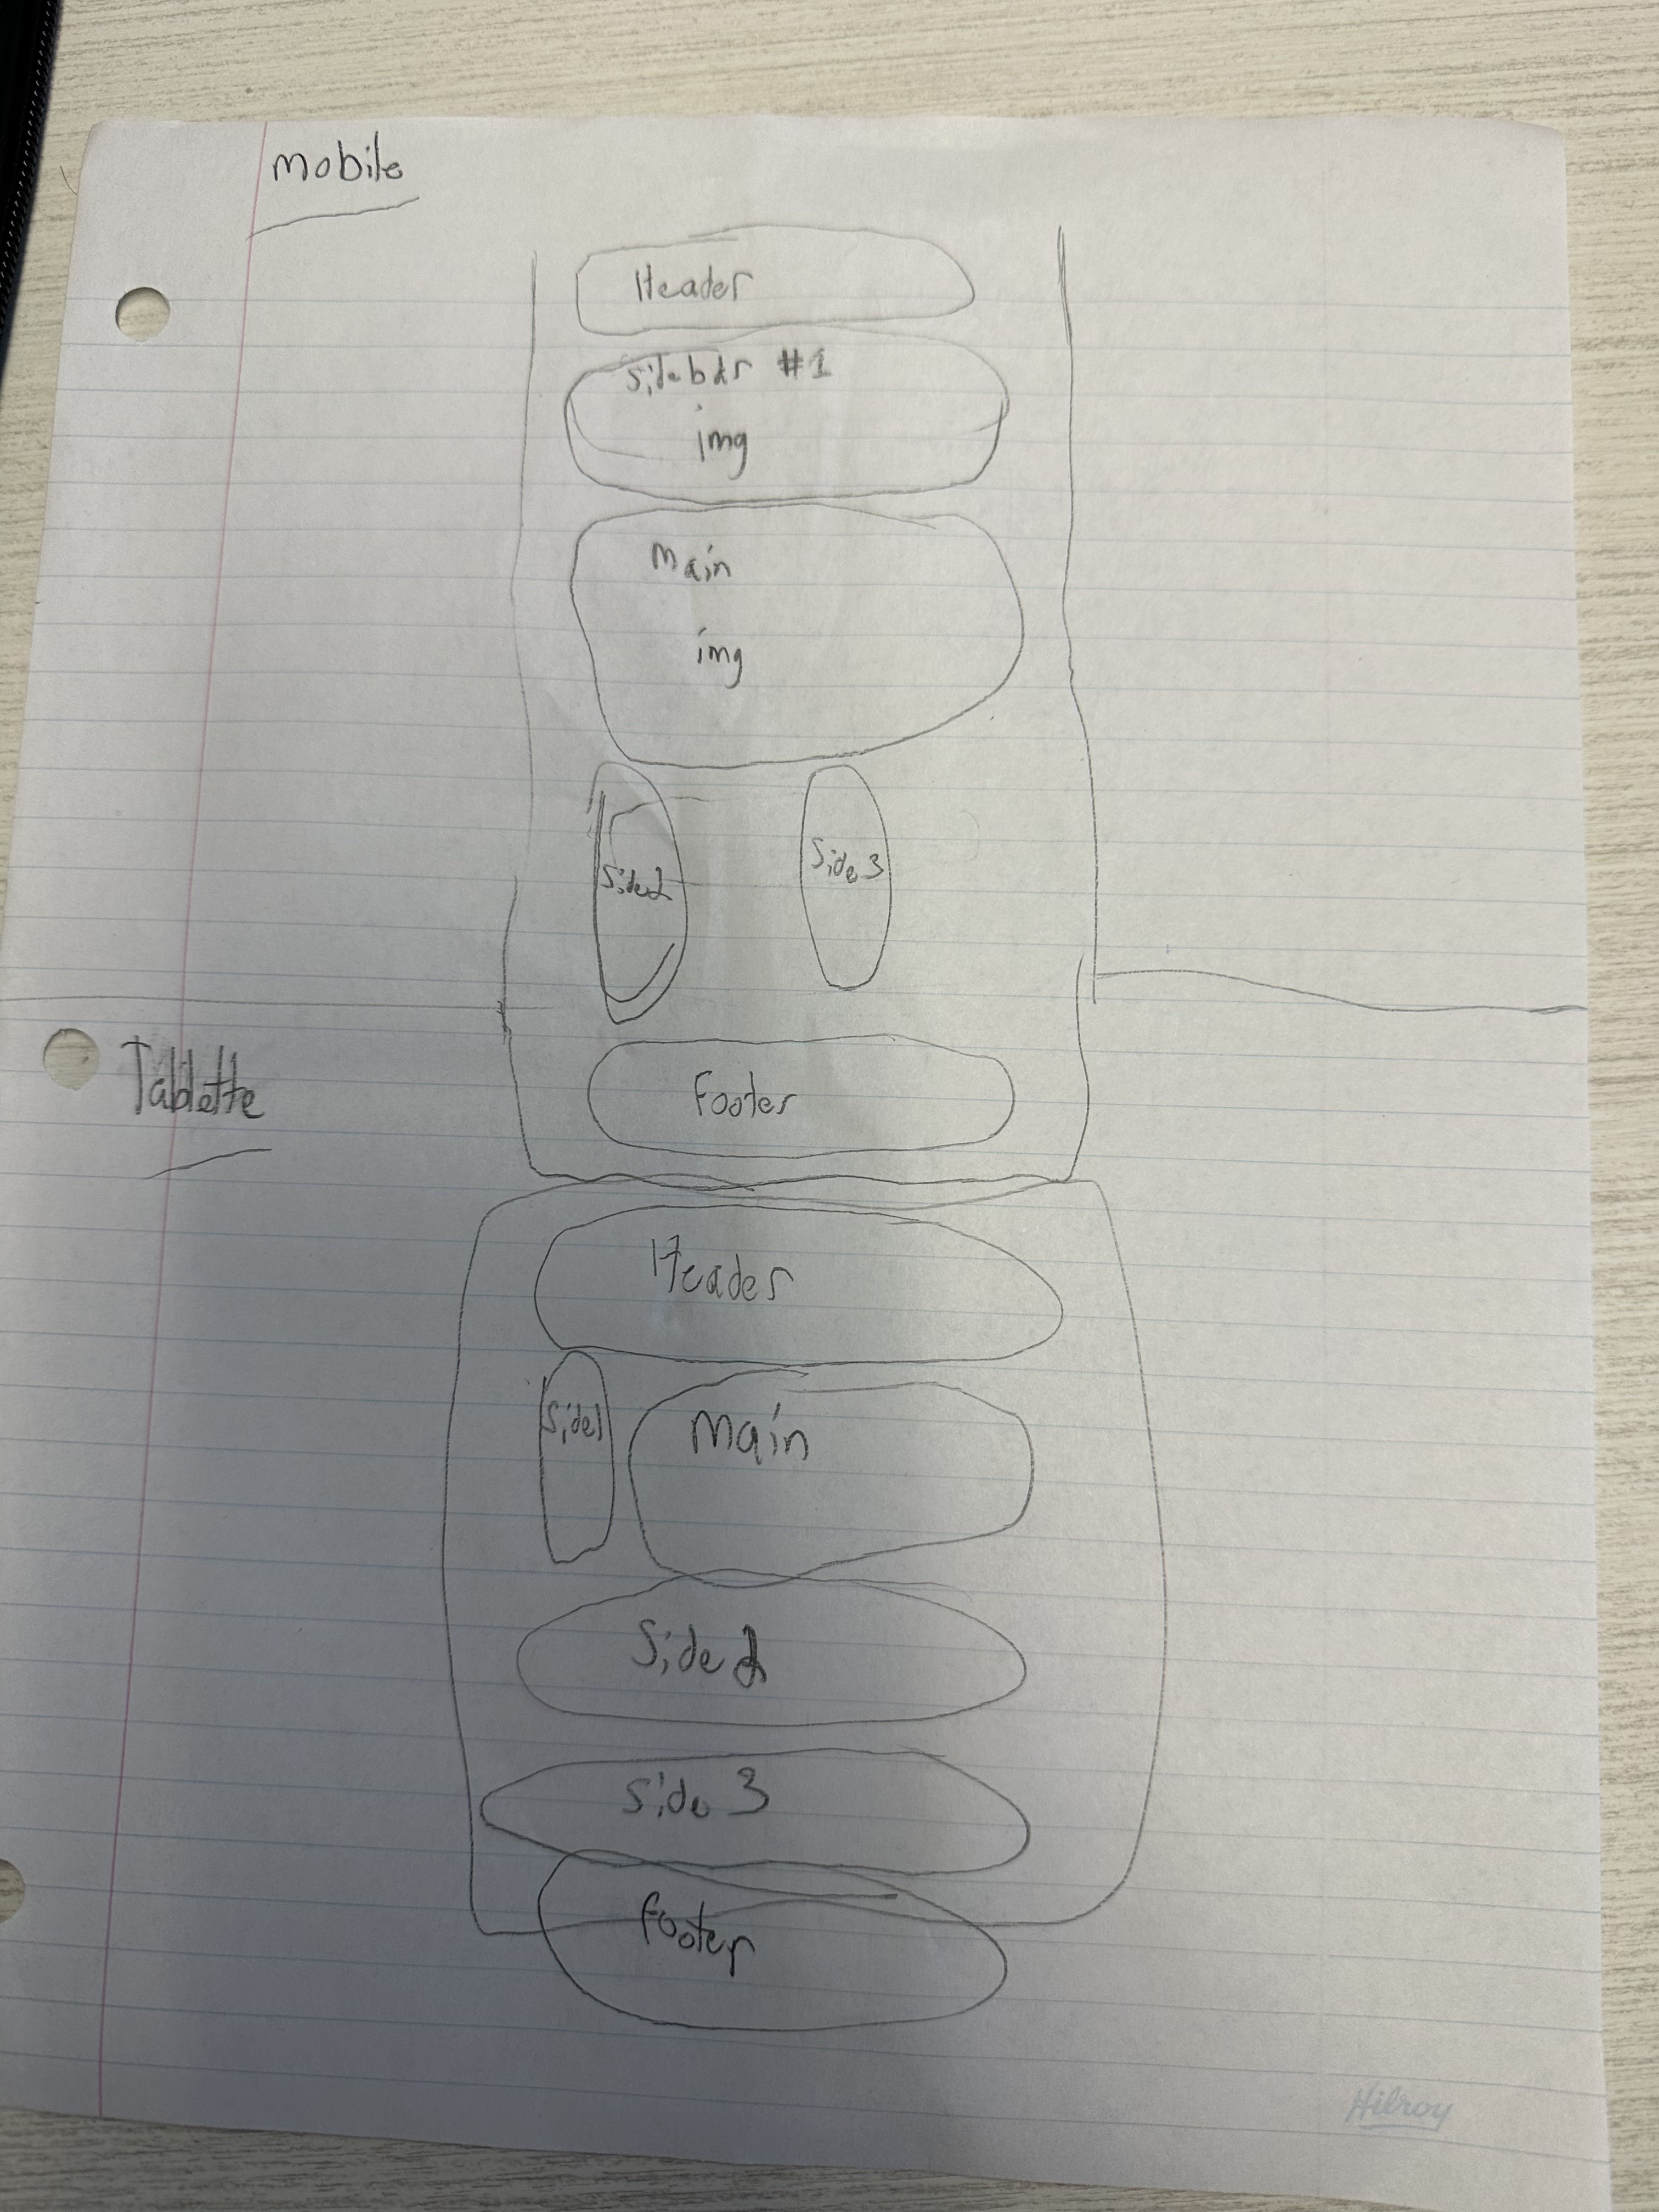 Mobile
Header
Sidebar #1
img
Main
img
Side2
Side 3
Tablette
Footer
Header
Side1
Main
Side 2
Side 3
Footer
Hilroy